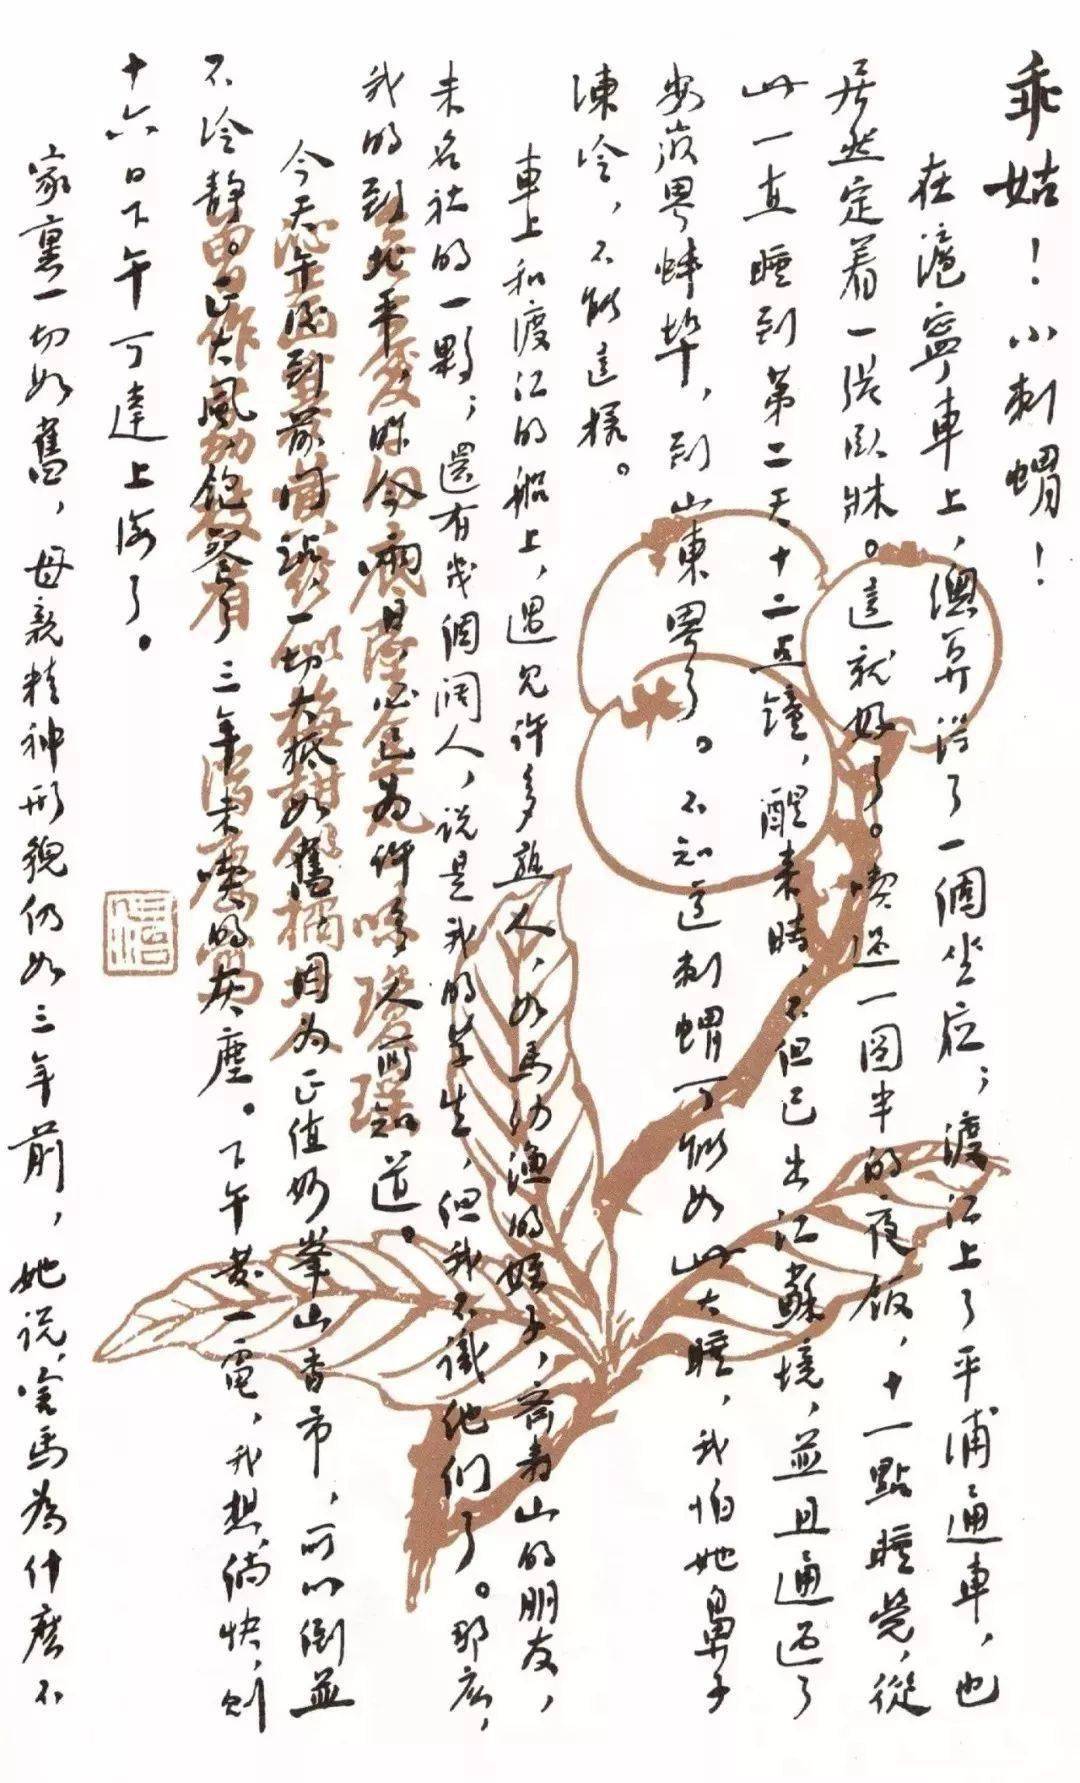 乖姑！小刺蝟！
在滬寧車上，總算得了一個坐位；渡江上了平浦通車，也
居然定着一張臥牀。這就好了。喫過一圓半的夜飯，十一點睡覺，從
此一直睡到第二天十二點鐘，醒來時，不但已出江蘇境，並且通過了
安徽界蚌埠，到山東界了。不知道刺蝟可能如此大睡，我怕她鼻子
凍冷，不能這樣。
車上和渡江的船上，遇見許多熟人，如馬幼漁的姪子，齊壽山的朋友，
未名社的一夥；還有幾個闊人，説是我的學生，但我不識他們了。那么，
我的到北平，昨今兩日，必已為許多人所知道。
今天午後到前門站，一切大抵如舊，因为正值妙峯山香市，所以倒並
不冷靜。正大風，飽餐了三年未喫的灰塵。下午發一電，我想，倘快，則
十六日下午可達上海了。
家裏一切如舊，母親精神形貌仍如三年前，她説，害馬為什麼不